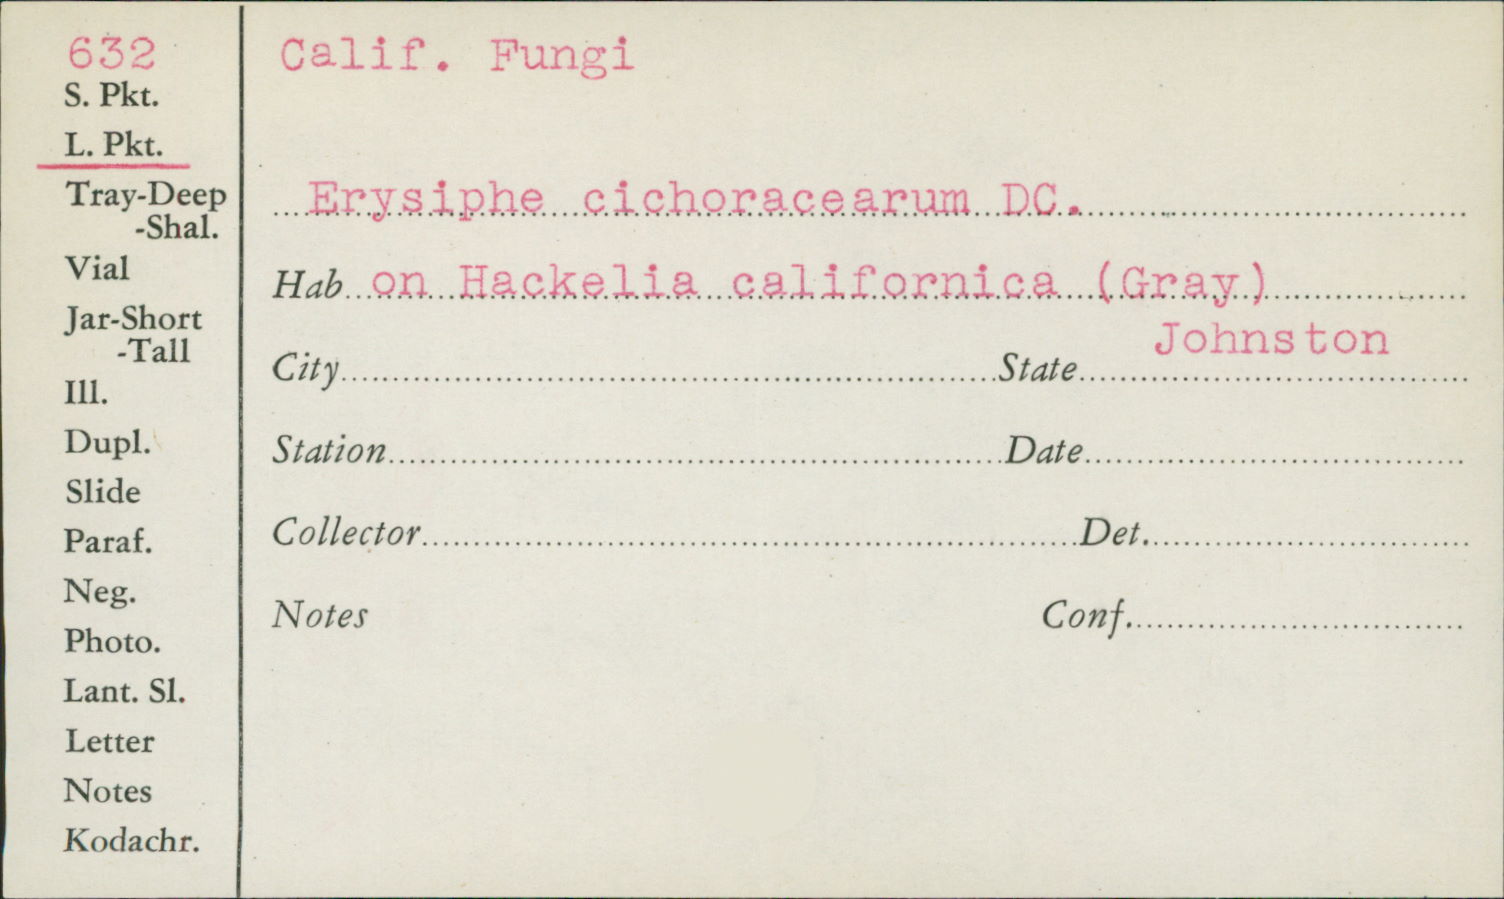 632
S. Pkt.
L. Pkt.
Tray-Deep
-Shal.
Vial
Jar-Short
-Tall
Ill.
Dupl.
Slide
Paraf.
Neg.
Photo.
Lant. Sl.
Letter
Notes
Kodachr.
Calif. Fungi
Erysiphe cichoracearum DC.
Hab on Hackelia californica (Gray)
Johnston
City State
Station Date
Collector Det.
Notes Conf.